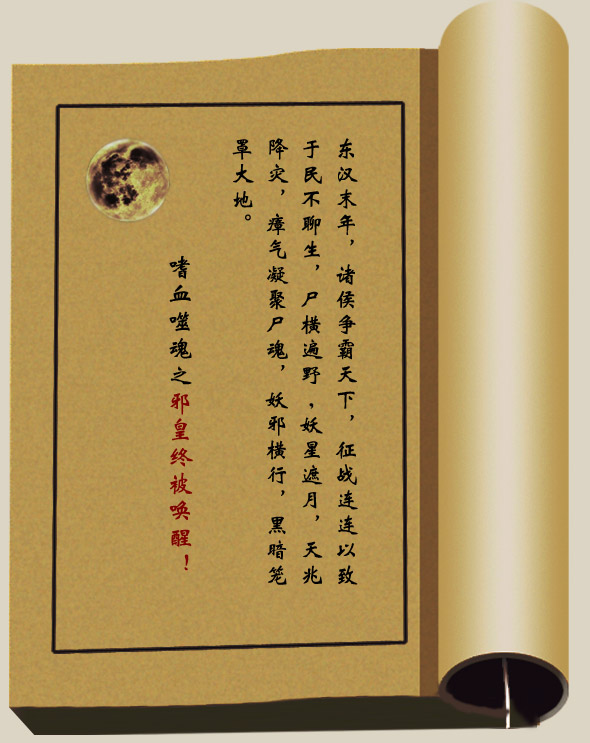 东汉末年，诸侯争霸天下，征战连连以致
于民不聊生，尸横遍野，妖星遮月，天兆
降灾，瘴气凝聚尸魂，妖邪横行，黑暗笼
罩大地。
嗜血噬魂之邪皇终被唤醒！